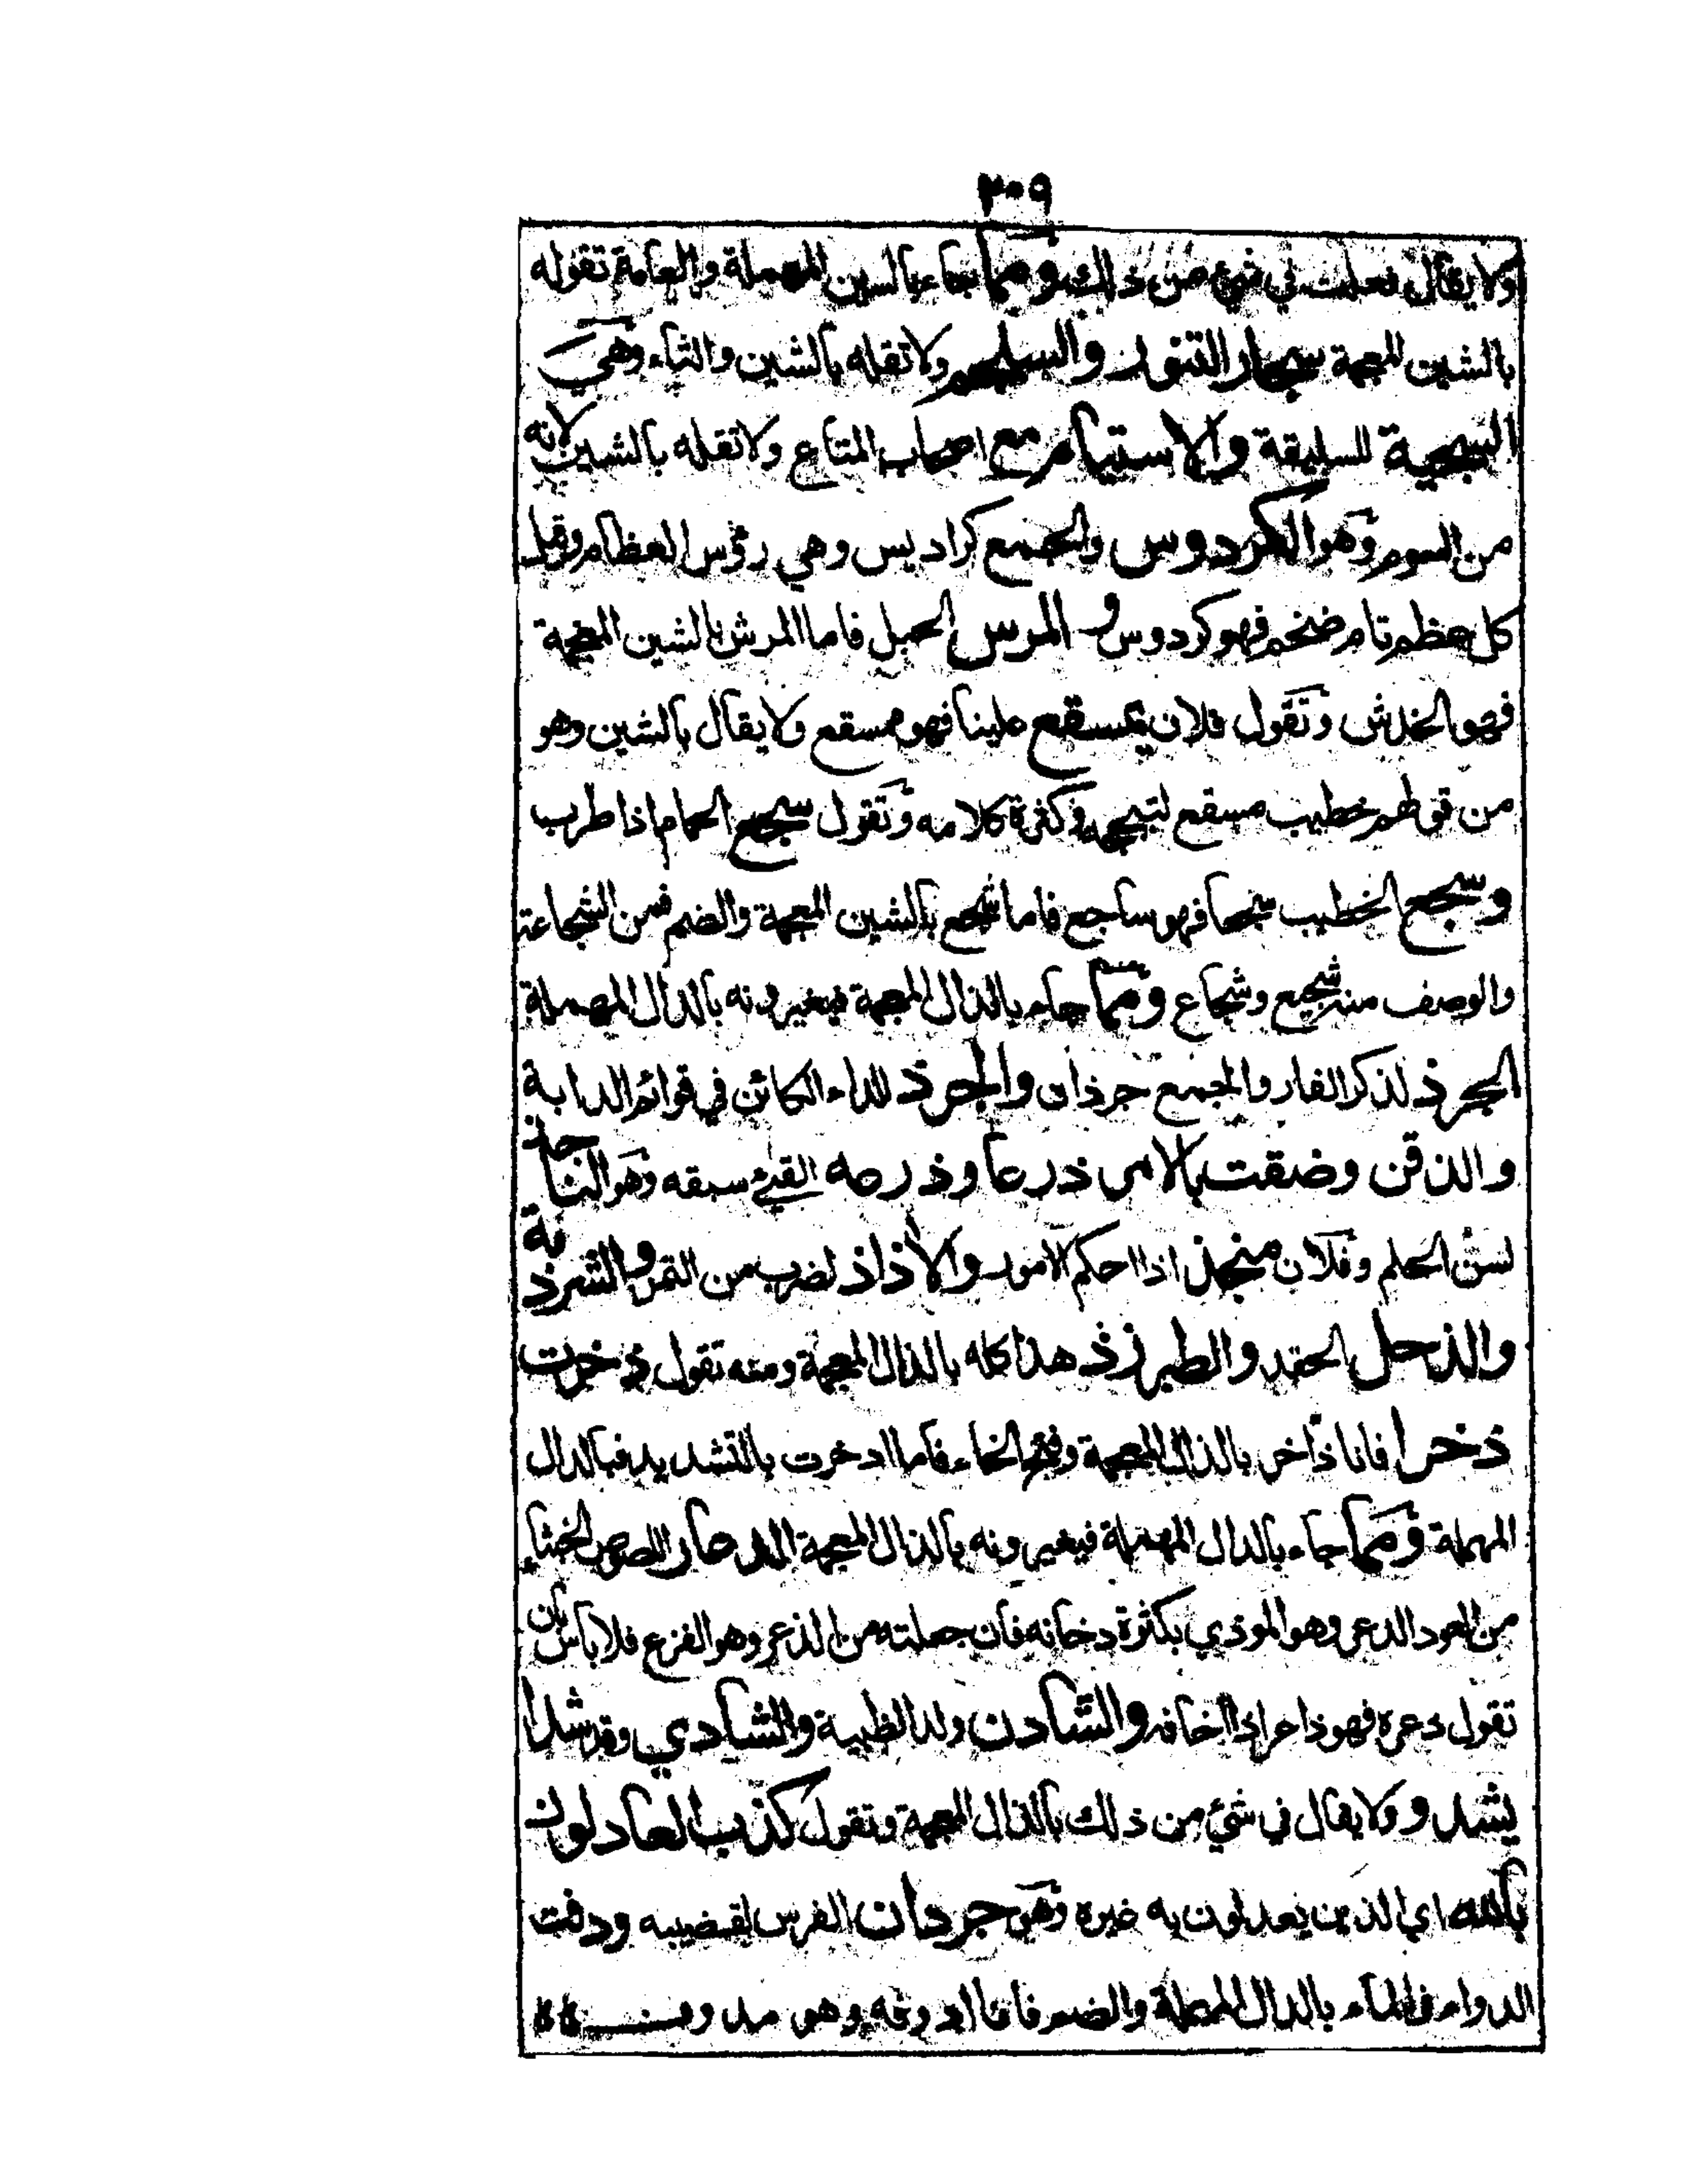 ٣٠٩
ولا يقال فعلت في شيء من ذلك ومما جاء بالسين المهملة والعامة تقوله
بالشين المعجمة سجار التنور والسلجم ولا تقله بالشين والثاء وهي
السجية للسليقة والاستيام مع اصحاب المتاع ولا تقله بالشين لانه
من السوم وهو الكردوس والجمع كراديس وهي رؤس العظام وقيل
كل عظم تام ضخم فهو كردوس والمرس الحبل فاما المرش بالشين المعجمة
فهو الخدش وتقول فلان يسقع علينا فهو مسقع ولا يقال بالشين وهو
من قولهم خطيب مسقع لتبجحه وكثرة كلامه وتقول سجع الحمام اذا طرب
وسجع الخطيب سجعا فهو ساجع فاما شجع بالشين المعجمة والضم فمن الشجاعة
والوصف منه شجيع وشجاع ومما جاء بالذال المعجمة فيغيرونه بالدال المهملة
الجرذ لذكر الفار والجمع جرذان والجرذ للداء الكائن في قوائم الدابة
والذقن وضقت بالامر ذرعا وذرعه القيء سبقه وهو الناجذ
لسن الحلم وفلان منجذ اذا احكم الامور والاذاذ لضرب من التمر والشرذ ية
والذحل الحقد والطبرزذ هذا كله بالذال المعجمة ومنه تقول ذخرت
ذخرا فانا ذاخر بالذال المعجمة وفتح الخاء فاما ادخرت بالتشديد فبالدال
المهملة ومما جاء بالدال المهملة فيغيرونه بالذال المعجمة الدعار اللصوص الخبثاء
من العود الدعر وهو الموذي بكثرة دخانه فان جعلته من الذعر وهو الفزع فلا باس بان
تقول ذعره فهو ذاعر اذا اخافه والشادن ولد الظبية والشادي وقد شدا
يشدو ولا يقال في شيء من ذلك بالذال المعجمة وتقول كذب العادلون
بالله اي الذين يعدلون به غيره وهو جردان الفرس لقضيبه ودفت
الدواء في الماء بالدال المهملة والضم فانا ادوفه وهو مدوف